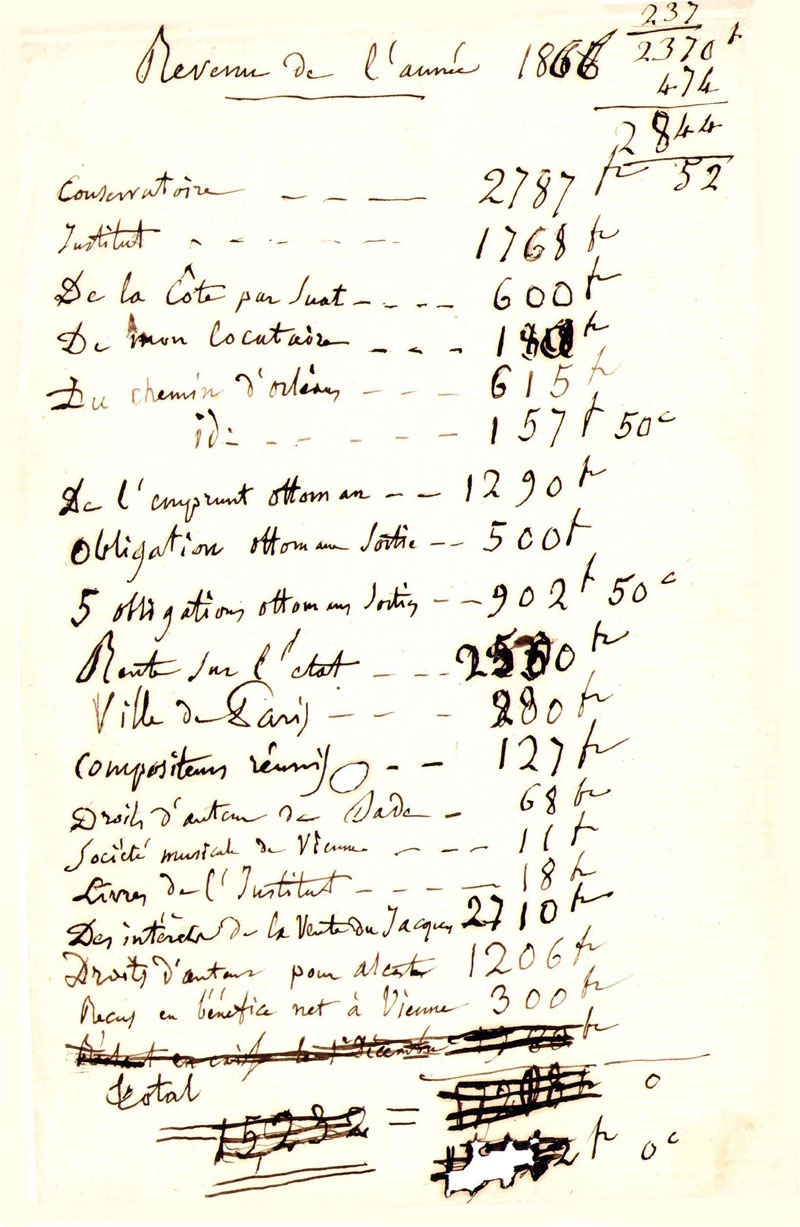 237
2370 f
474
2844
52
Revenu de l'année 1866
Conservatoire - - - 2787 fr
Institut - - - - - 1768 fr
De la Côte par Suat - - - - 600 fr
De mon locataire - - - fr
Du chemin d'orléans - - - 615 fr
id: - - - - - - 157 f 50 c
De l'emprunt ottoman - - 1290 fr
Obligation ottomane Sortie - - 500 f
5 obligations ottomanes Sorties - - 902 f 50 c
Rente Sur l'état - - - fr
Ville de Paris - - - 280 fr
compositeurs réunis - - 127 fr
Droits d'auteur de Bade - 68 fr
Société musicale de Vienne - - - 11 fr
Livres de l'Institut - - - - - 18 fr
Des intérêts de la Vente du Jacques 2710 fr
Droits d'auteur pour alceste 1206 fr
Reçus en bénéfice net à Vienne 300 fr
Restant en caisse le 1er Décembre fr
total 0
15,232 =
2 fr 0 c